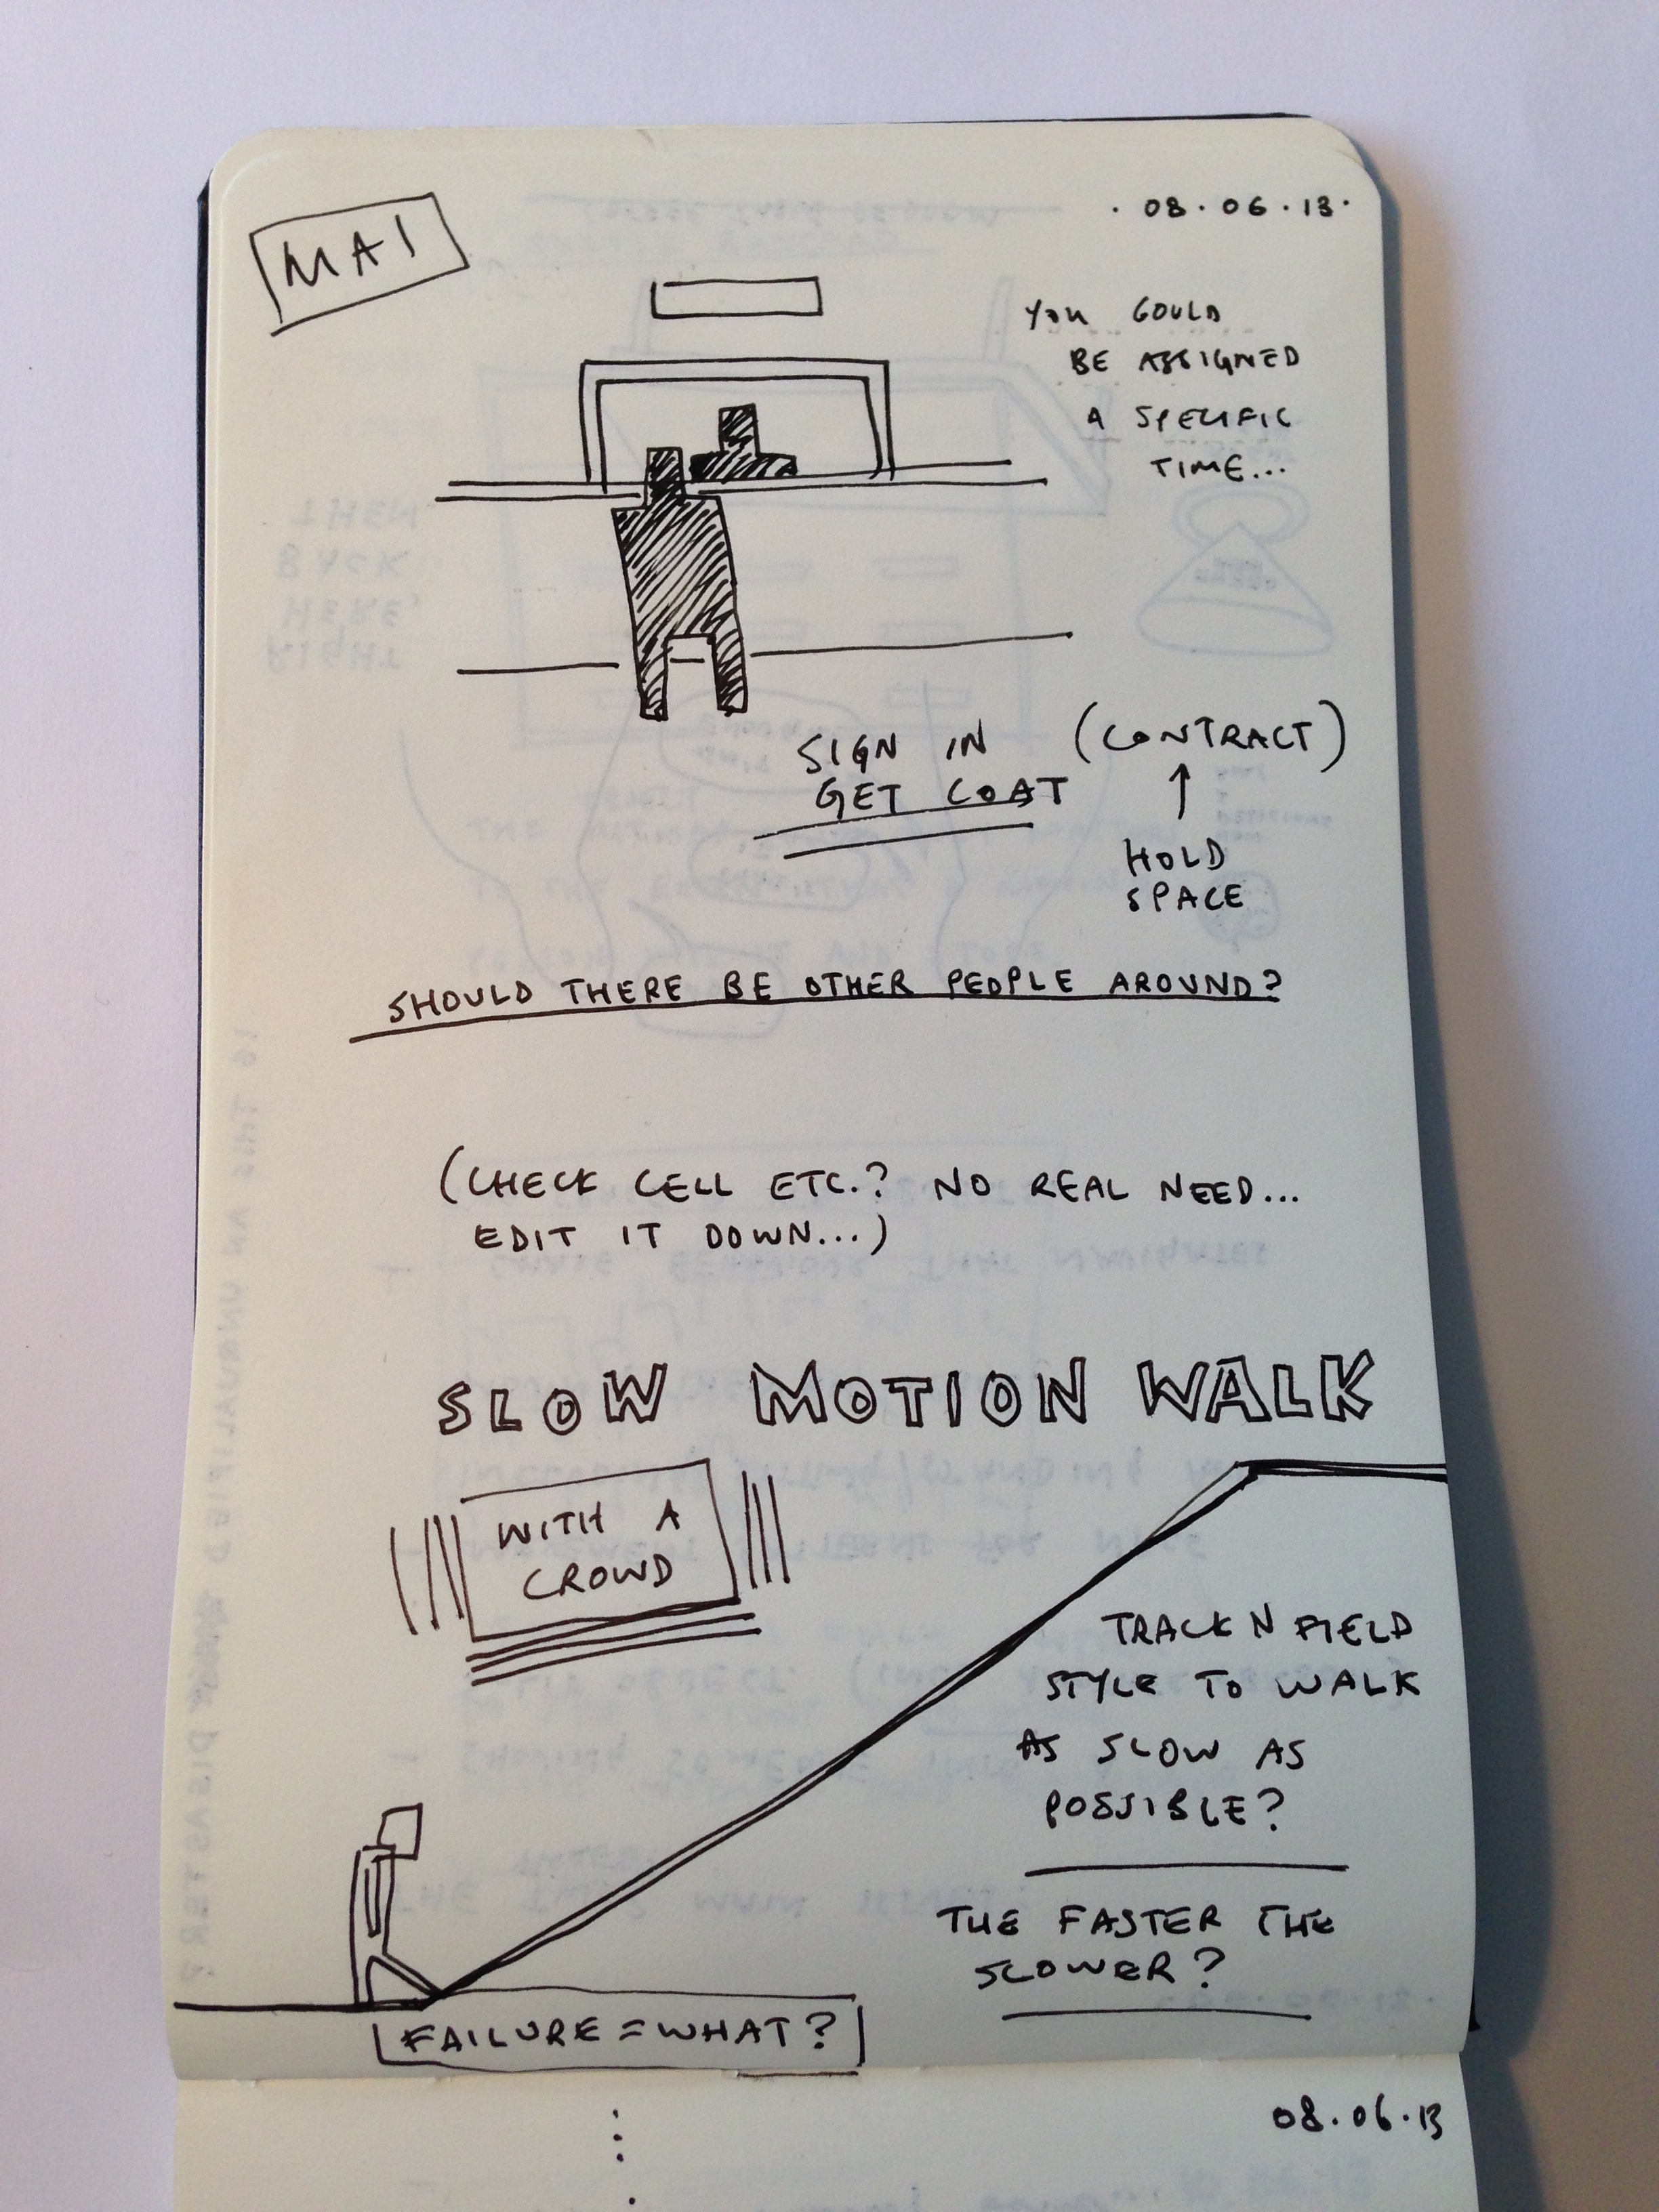 MAI
· 08 · 06 · 13 ·
YOU COULD
BE ASSIGNED
A SPECIFIC
TIME...
SIGN IN (CONTRACT)
GET COAT
↑
HOLD
SPACE
SHOULD THERE BE OTHER PEOPLE AROUND?
(CHECK CELL ETC.? NO REAL NEED...
EDIT IT DOWN...)
SLOW MOTION WALK
WITH A
CROWD
TRACK N FIELD
STYLE TO WALK
AS SLOW AS
POSSIBLE?
THE FASTER THE
SLOWER?
FAILURE = WHAT?
08.06.13